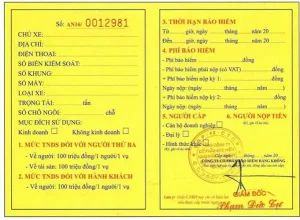 Số: AN16/ 0012981
CHỦ XE:
ĐỊA CHỈ:
ĐIỆN THOẠI:
SỐ BIỂN KIỂM SOÁT:
SỐ KHUNG:
SỐ MÁY:
LOẠI XE:
TRỌNG TẢI: tấn
SỐ CHỖ NGỒI: chỗ
MỤC ĐÍCH SỬ DỤNG:
Kinh doanh Không kinh doanh
1. MỨC TNDS ĐỐI VỚI NGƯỜI THỨ BA
- Về người: 100 triệu đồng/1 người/1 vụ
- Về tài sản: 100 triệu đồng/1 vụ
2. MỨC TNDS ĐỐI VỚI HÀNH KHÁCH
- Về người: 100 triệu đồng/1 người/1 vụ
3. THỜI HẠN BẢO HIỂM
Từ giờ, ngày tháng năm 20
Đến giờ, ngày tháng năm 20
4. PHÍ BẢO HIỂM
- Phí bảo hiểm đồng
- Phí bảo hiểm phải nộp (có VAT) đồng
+ Phí bảo hiểm nộp kỳ 1: đồng
Ngày nộp tháng năm 20
+ Phí bảo hiểm nộp kỳ 2: đồng
Ngày nộp tháng năm 20
5. NGƯỜI CẤP 6. NGƯỜI NỘP TIỀN
- Cán bộ doanh nghiệp
- Đại lý
- Hình thức khác
GIÁM ĐỐC